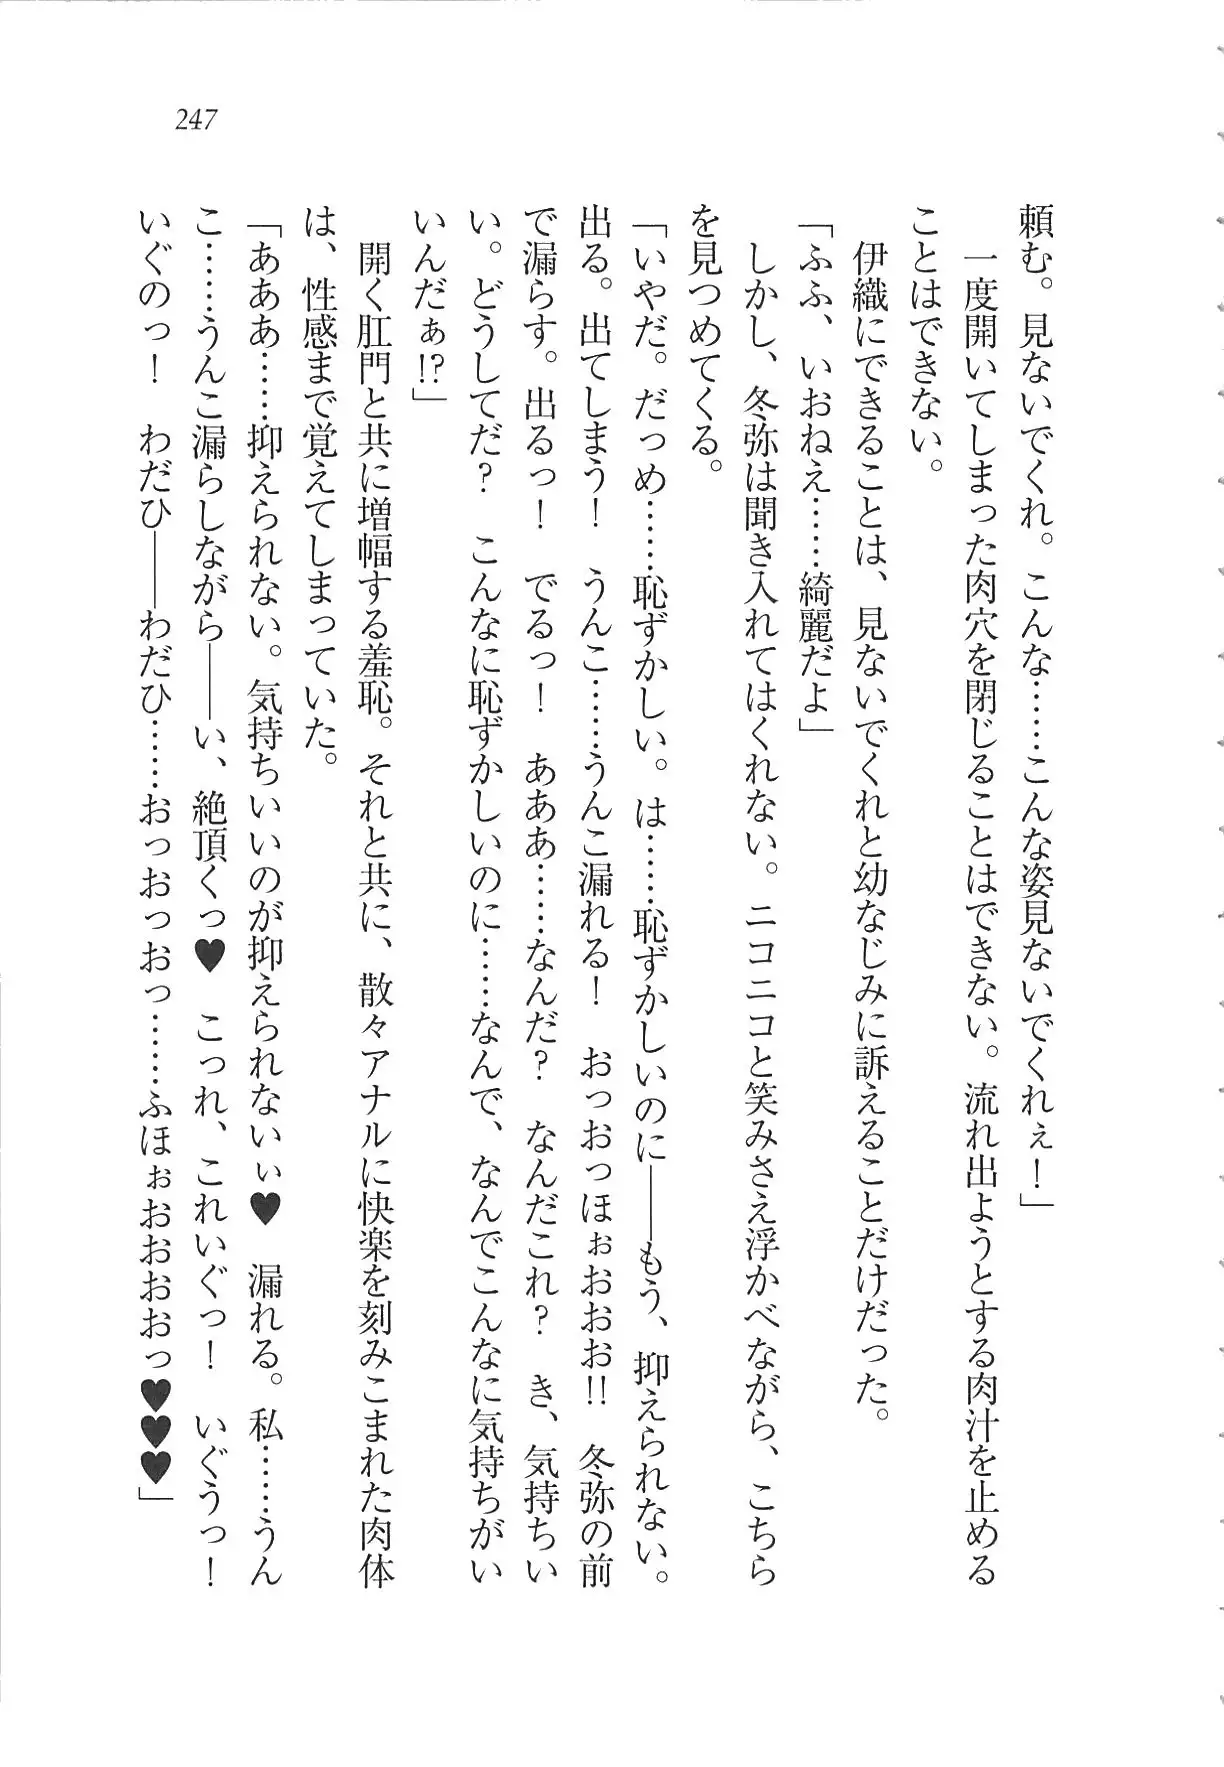 247
頼む。見ないでくれ。こんな……こんな姿見ないでくれぇ！」
　一度開いてしまった肉穴を閉じることはできない。流れ出ようとする肉汁を止める
ことはできない。
　伊織にできることは、見ないでくれと幼なじみに訴えることだけだった。
「ふふ、いおねえ……綺麗だよ」
　しかし、冬弥は聞き入れてはくれない。ニコニコと笑みさえ浮かべながら、こちら
を見つめてくる。
「いやだ。だっめ……恥ずかしい。は……恥ずかしいのに――もう、抑えられない。
出る。出てしまう！　うんこ……うんこ漏れる！　おっおっほぉおおお!!　冬弥の前
で漏らす。出るっ！　でるっ！　あああ……なんだ？　なんだこれ？　き、気持ちい
い。どうしてだ？　こんなに恥ずかしいのに……なんで、なんでこんなに気持ちがい
いんだぁ!?」
　開く肛門と共に増幅する羞恥。それと共に、散々アナルに快楽を刻みこまれた肉体
は、性感まで覚えてしまっていた。
「あああ……抑えられない。気持ちいいのが抑えられないぃ♥　漏れる。私……うん
こ……うんこ漏らしながら――い、絶頂くっ♥　こっれ、これいぐっ！　いぐうっ！
いぐのっ！　わだひ――わだひ……おっおっおっ……ふほぉおおおおっ♥♥♥」